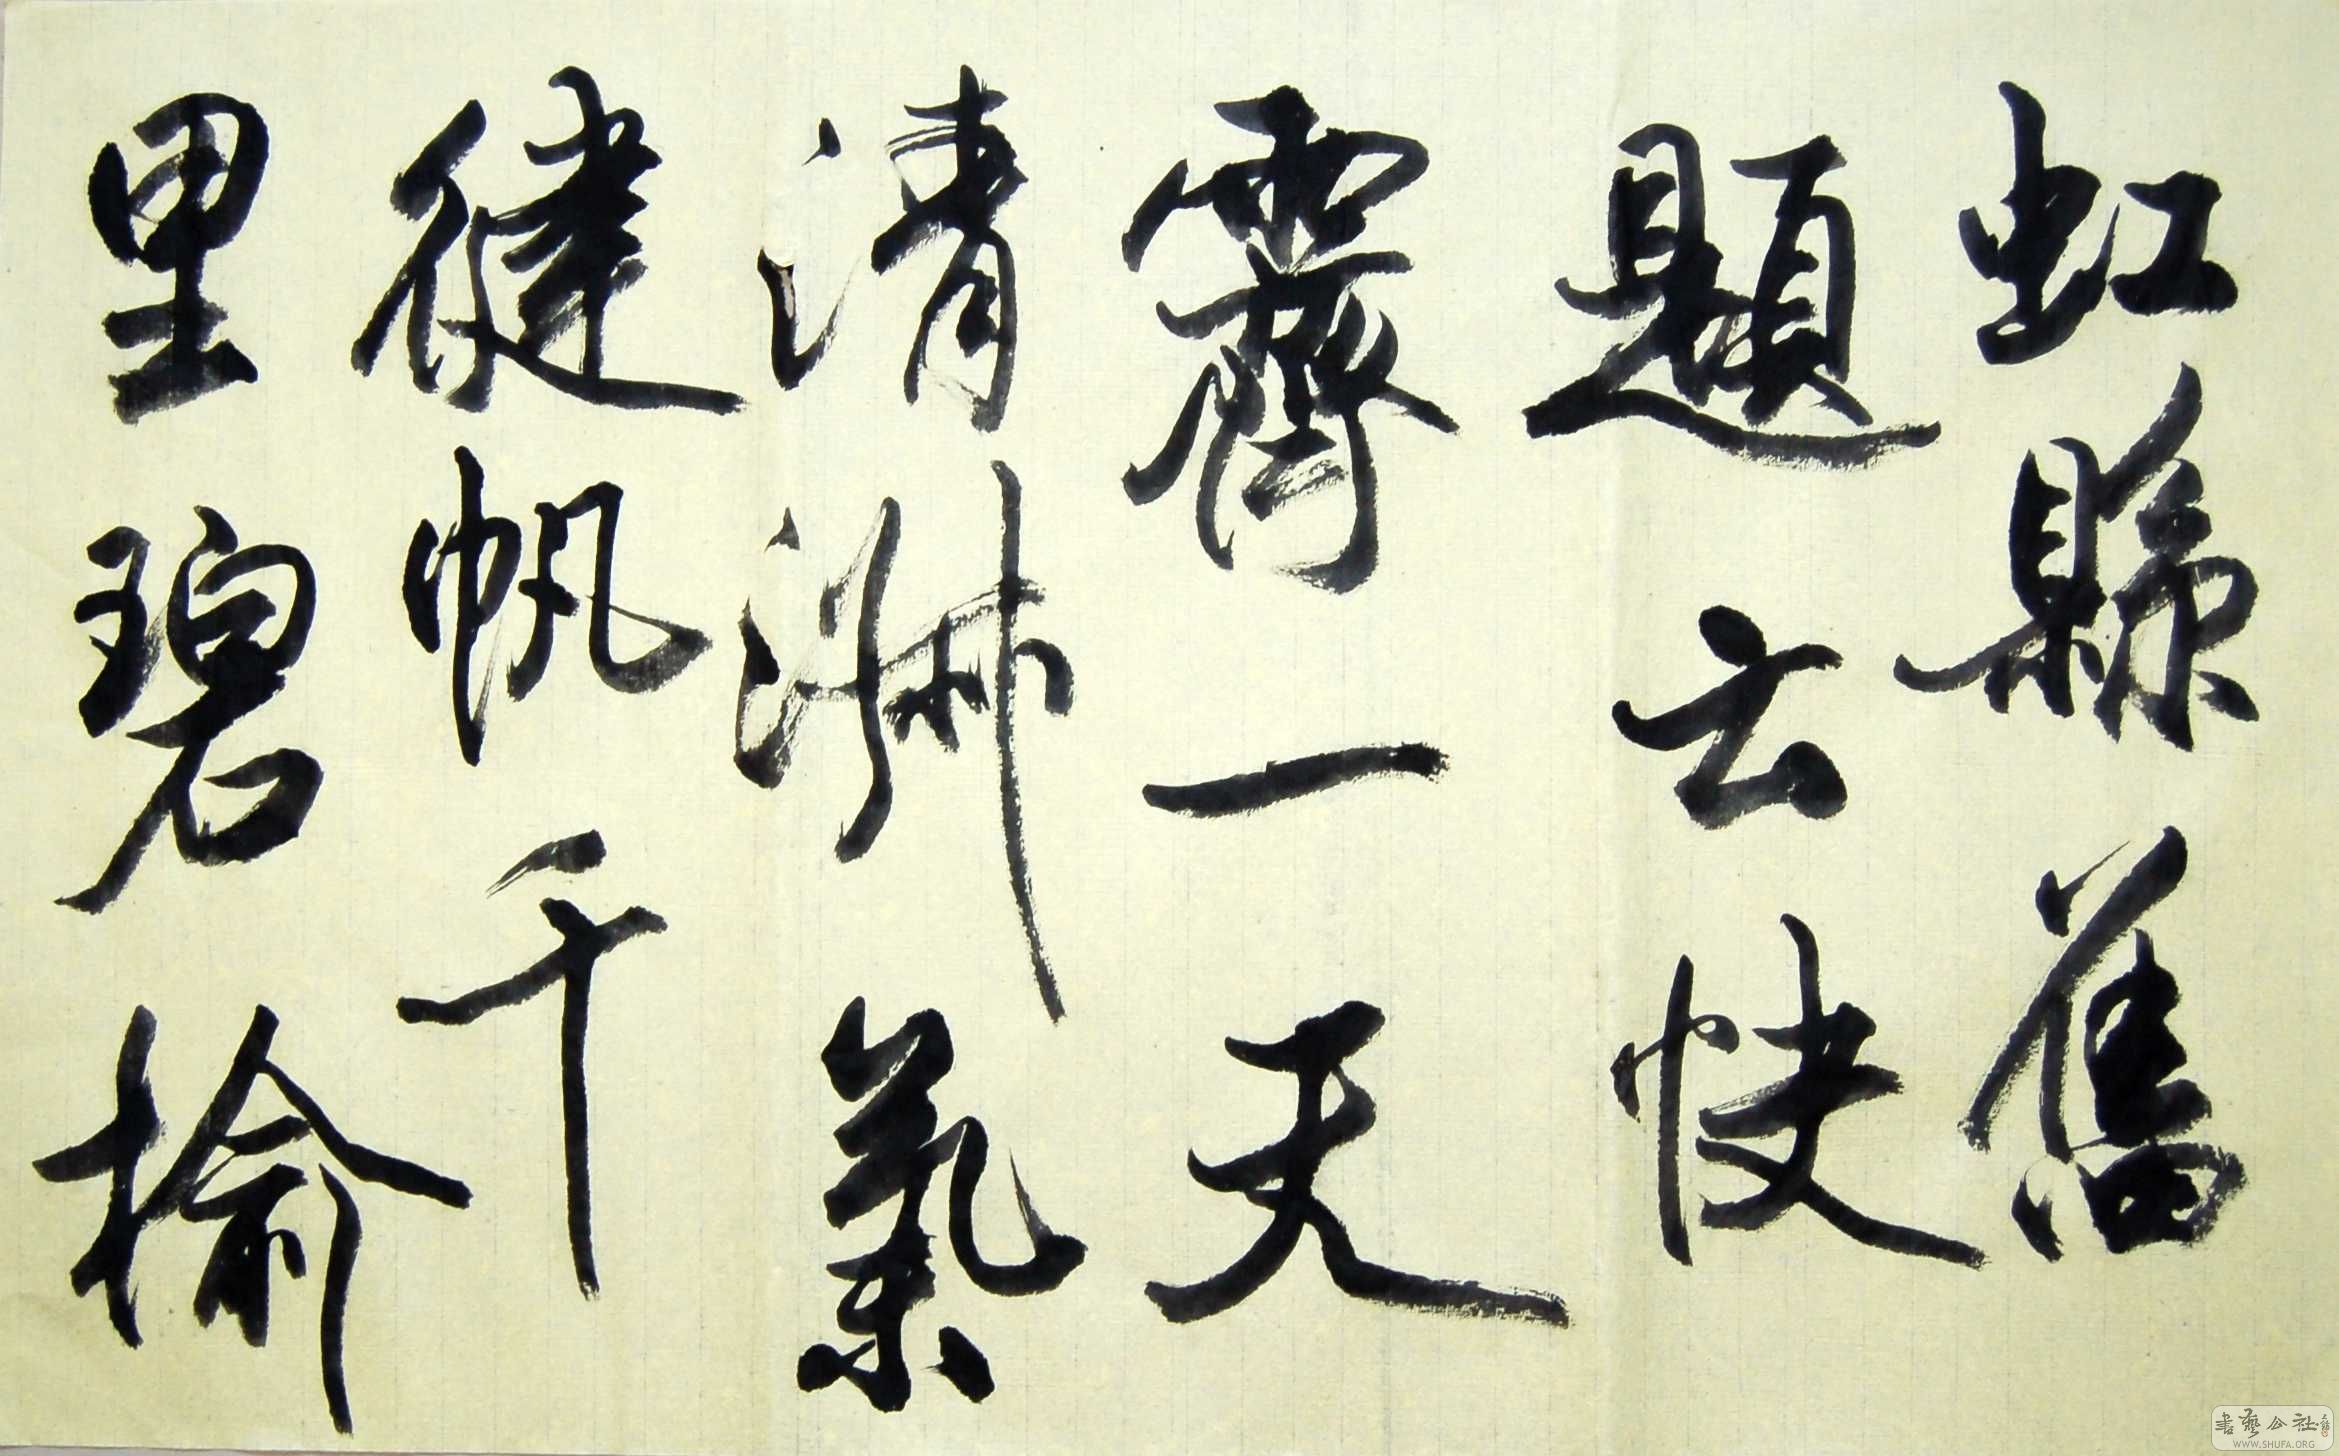 虹縣舊
題云快
霽一天
清淑氣
健帆千
里碧榆
書藝公社
WWW.SHUFA.ORG